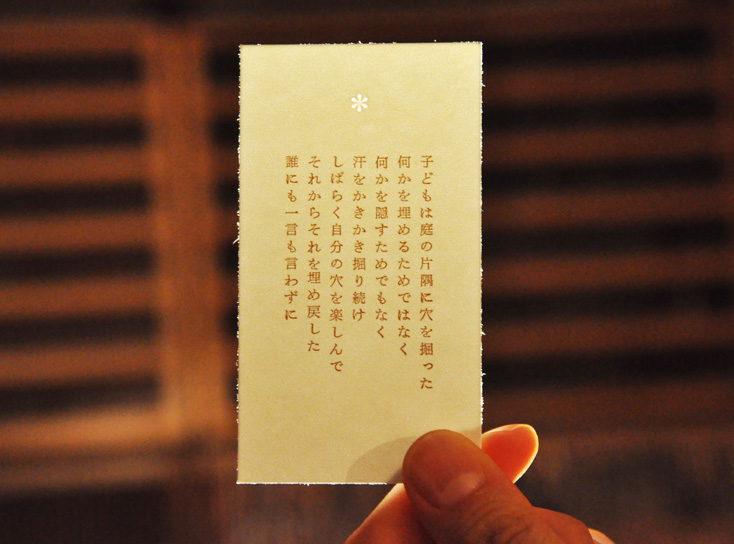 子どもは庭の片隅に穴を掘った
何かを埋めるためではなく
何かを隠すためでもなく
汗をかきかき掘り続け
しばらく自分の穴を楽しんで
それからそれを埋め戻した
誰にも一言も言わずに